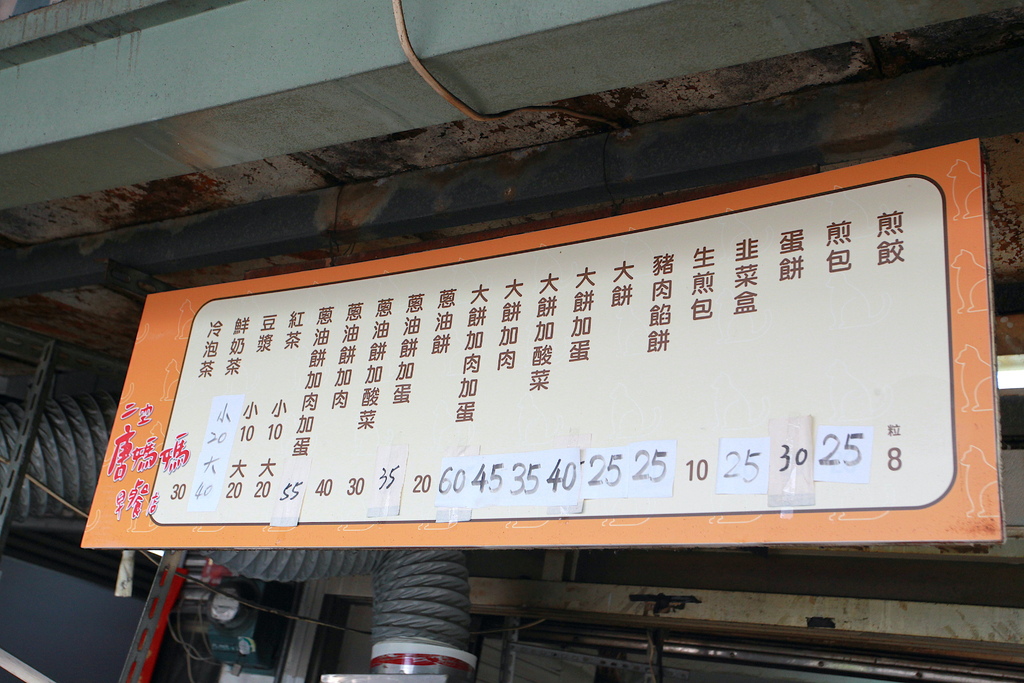 煎餃 粒 8
煎包 25
蛋餅 30
韭菜盒 25
生煎包 10
豬肉餡餅 25
大餅 25
大餅加蛋 40
大餅加酸菜 35
大餅加肉 45
大餅加肉加蛋 60
蔥油餅 20
蔥油餅加蛋 35
蔥油餅加酸菜 30
蔥油餅加肉 40
蔥油餅加肉加蛋 55
紅茶 小 10 大 20
豆漿 小 10 大 20
鮮奶茶 小 20 大 40
冷泡茶 30
二空
唐媽媽
早餐店